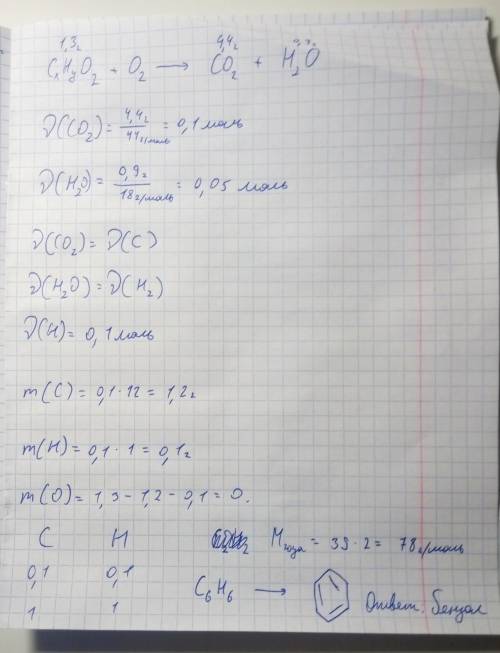 1,3г 4,4г 0,9г
CxHyO2 + O2 → CO2 + H2O
ν(CO2) = 4,4г / 44г/моль = 0,1 моль
ν(H2O) = 0,9г / 18г/моль = 0,05 моль
ν(CO2) = ν(C)
ν(H2O) = ν(H2)
ν(H) = 0,1 моль
m(C) = 0,1 · 12 = 1,2г
m(H) = 0,1 · 1 = 0,1г
m(O) = 1,3 - 1,2 - 0,1 = 0.
C H = 39 · 2 = 78г/моль
0,1 0,1 C6H6 → Ответ: бензол
1 1